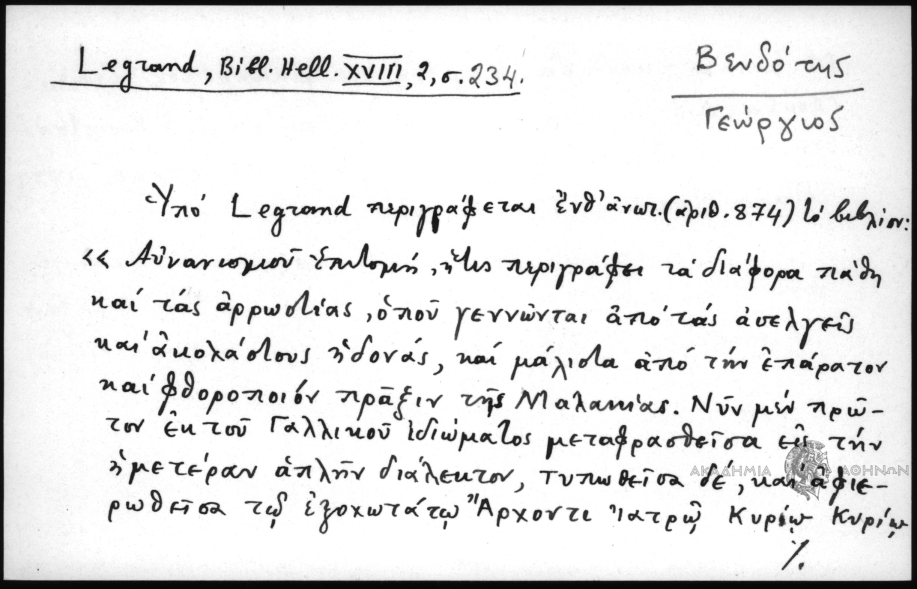 Legrand, Bibl. Hell. XVIII, 2, σ. 234.
Βενδότης
Γεώργιος
Ὑπό Legrand περιγράφεται ἔνθ' ἀνωτ. (ἀριθ. 874) τό βιβλίον:
«Αὐνανισμοῦ ἐπιτομή, ἥτις περιγράφει τά διάφορα πάθη
καί τάς ἀρρωστίας, ὁποῦ γεννῶνται ἀπό τάς ἀσελγεῖς
καί ἀκολάστους ἡδονάς, καί μάλιστα ἀπό τήν ἐπάρατον
καί φθοροποιόν πρᾶξιν τῆς Μαλακίας. Νῦν μέν πρῶ-
τον ἐκ τοῦ Γαλλικοῦ ἰδιώματος μεταφρασθεῖσα εἰς τήν
ἡμετέραν ἁπλῆν διάλεκτον, τυπωθεῖσα δέ, καί ἀφιε-
ΑΚΑΔΗΜΙΑ ΑΘΗΝΩΝ
ρωθεῖσα τῷ ἐξοχωτάτῳ Ἄρχοντι Ἰατρῷ Κυρίῳ Κυρίῳ
./.